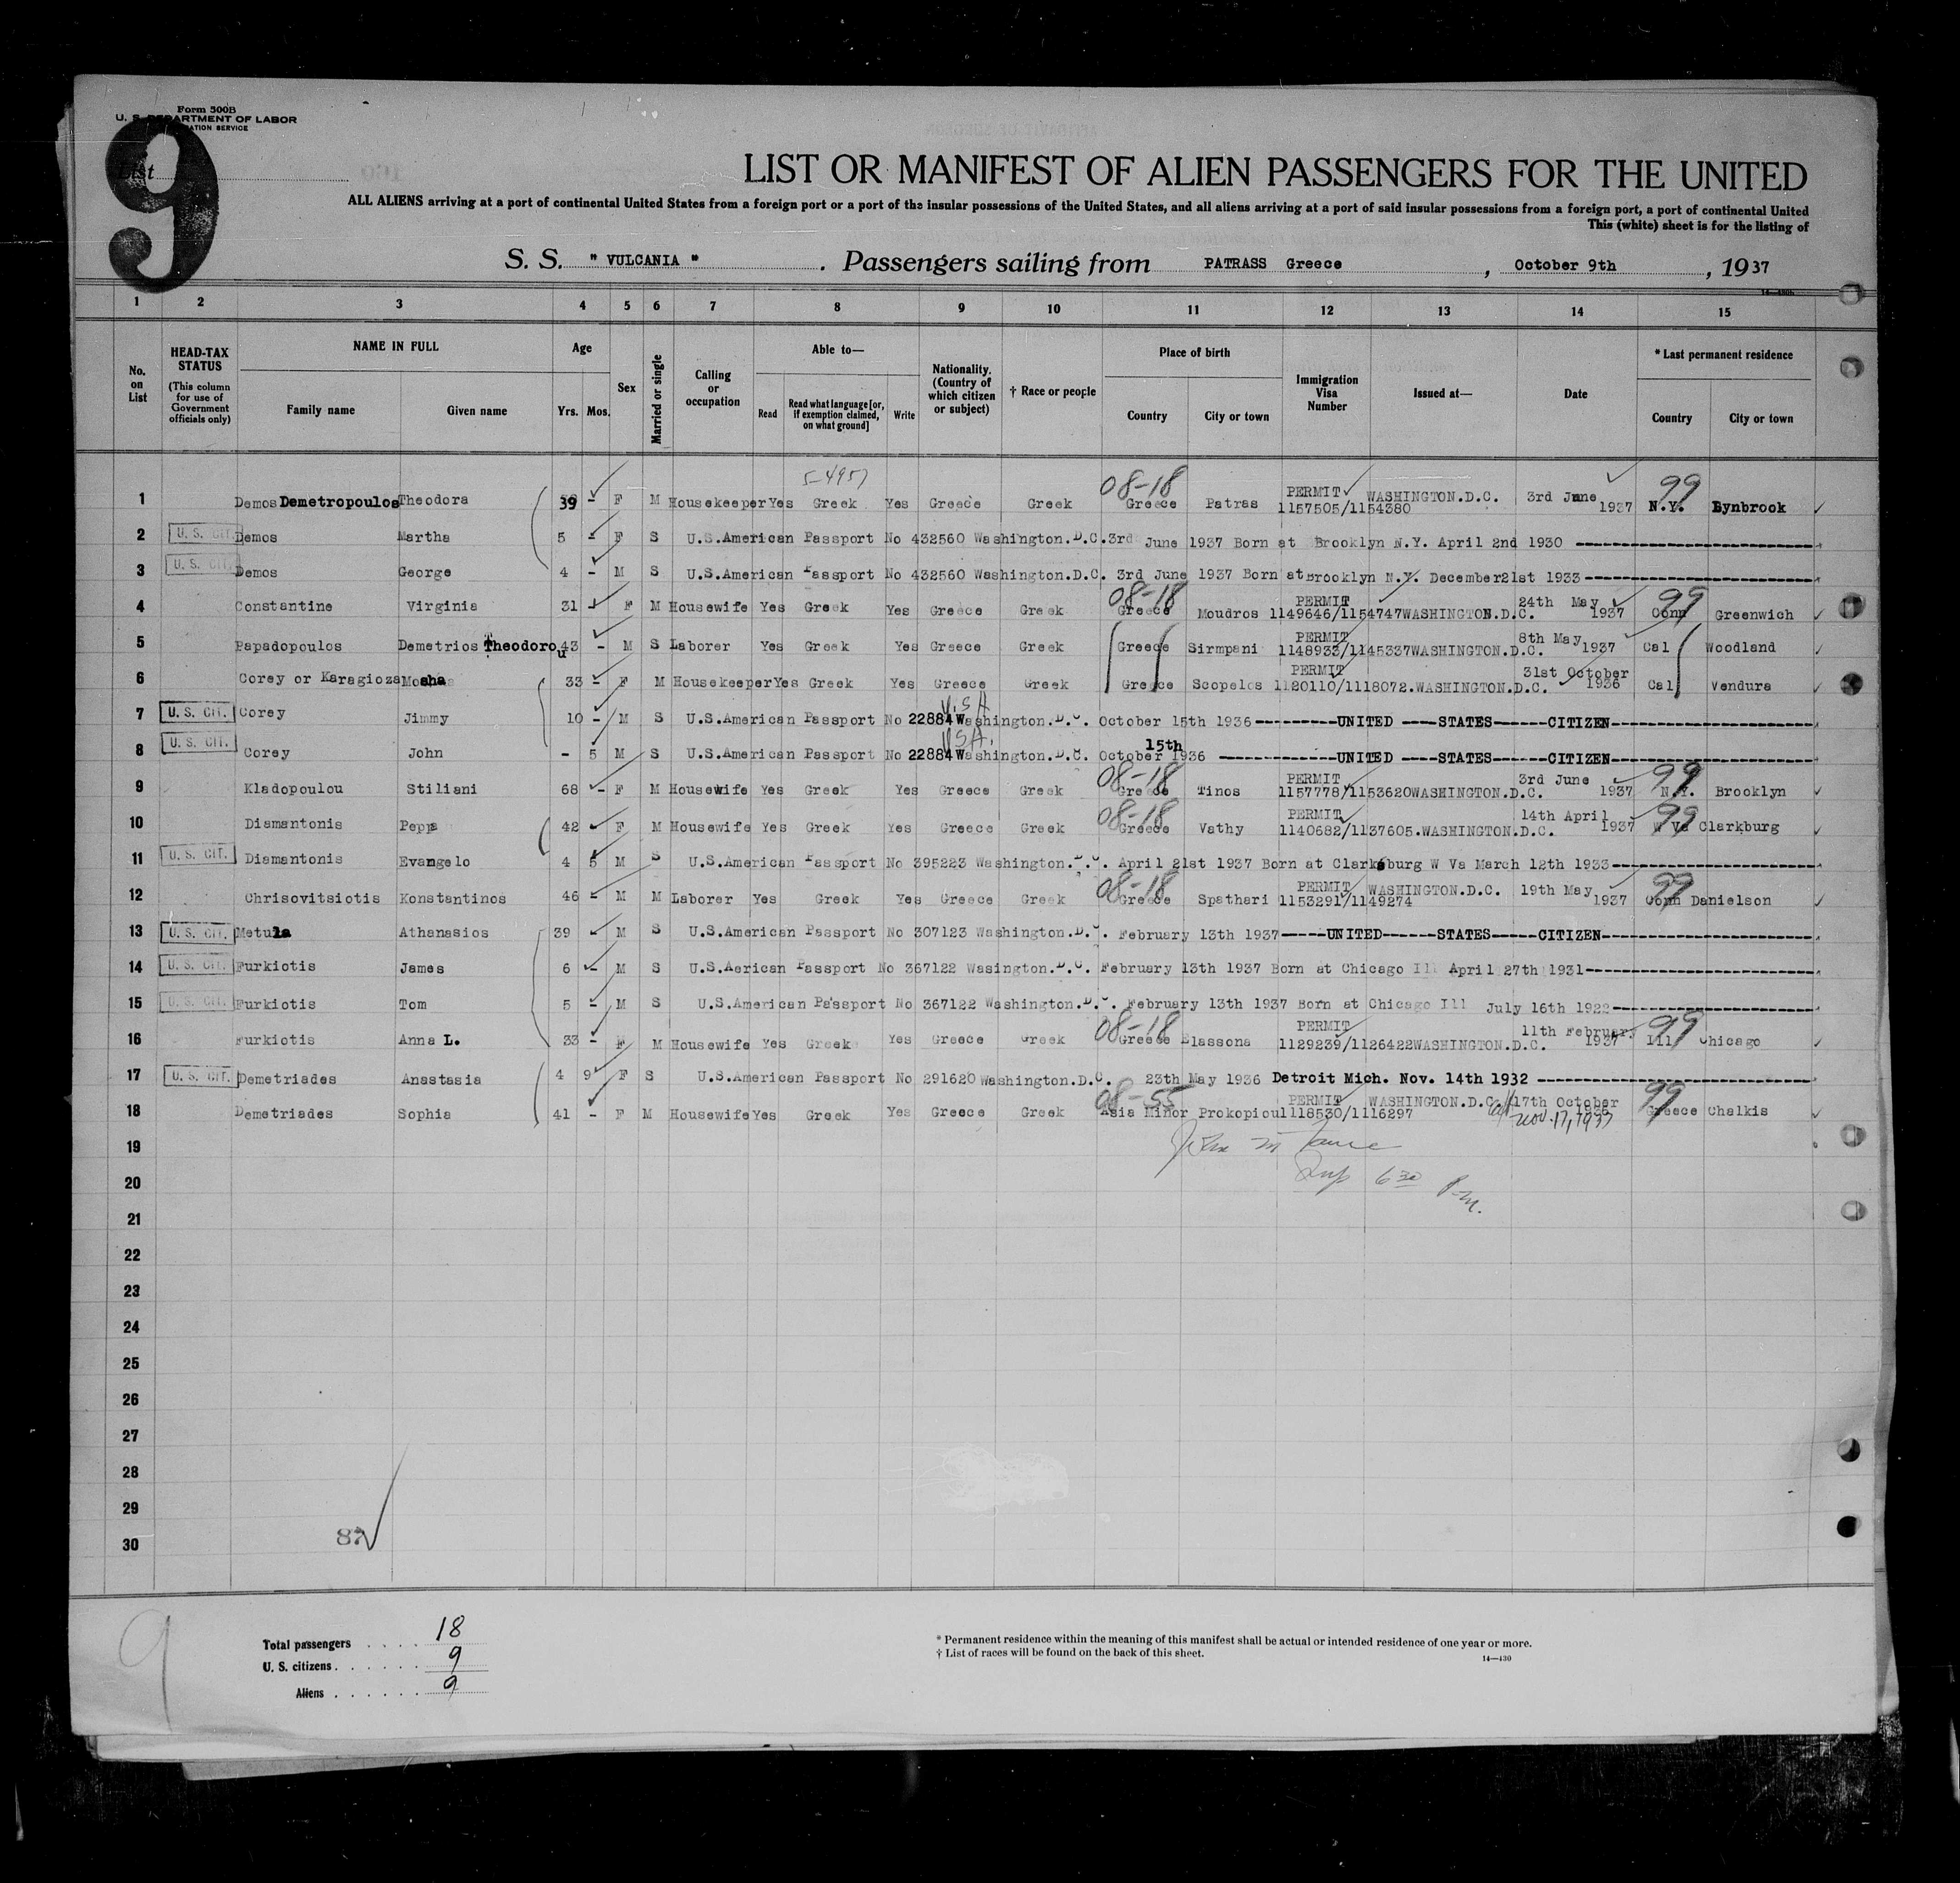 Form 500B
U. S. DEPARTMENT OF LABOR
IMMIGRATION SERVICE
List
9
LIST OR MANIFEST OF ALIEN PASSENGERS FOR THE UNITED
ALL ALIENS arriving at a port of continental United States from a foreign port or a port of the insular possessions of the United States, and all aliens arriving at a port of said insular possessions from a foreign port, a port of continental United
This (white) sheet is for the listing of
S. S. " VULCANIA " . Passengers sailing from PATRASS Greece , October 9th , 1937
1 2 3 4 5 6 7 8 9 10 11 12 13 14 15
No. on List HEAD-TAX STATUS (This column for use of Government officials only) NAME IN FULL Family name Given name Age Yrs. Mos. Sex Married or single Calling or occupation Able to— Read Read what language [or, if exemption claimed, on what ground] Write Nationality. (Country of which citizen or subject) † Race or people Place of birth Country City or town Immigration Visa Number Issued at— Date * Last permanent residence Country City or town
5-4957
1 Demos Demetropoulos Theodora 39 - F M Housekeeper Yes Greek Yes Greece Greek 08-18 Greece Patras PERMIT 1157505/1154380 WASHINGTON.D.C. 3rd June 1937 99 N.Y. Bynbrook
2 U. S. CIT. Demos Martha 5 - F S U.S.American Passport No 432560 Washington.D.C. 3rd June 1937 Born at Brooklyn N.Y. April 2nd 1930
3 U. S. CIT. Demos George 4 - M S U.S.American Passport No 432560 Washington.D.C. 3rd June 1937 Born at Brooklyn N.Y. December 21st 1933
4 Constantine Virginia 31 - F M Housewife Yes Greek Yes Greece Greek 08-18 Greece Moudros PERMIT 1149646/1154747 WASHINGTON.D.C. 24th May 1937 99 Conn Greenwich
5 Papadopoulos Demetrios Theodorou 43 - M S Laborer Yes Greek Yes Greece Greek Greece Sirmpani PERMIT 1148933/1145337 WASHINGTON.D.C. 8th May 1937 Cal Woodland
6 Corey or Karagioza Mosha 33 - F M Housekeeper Yes Greek Yes Greece Greek Greece Scopelos PERMIT 1120110/1118072. WASHINGTON.D.C. 31st October 1936 Cal Vendura
7 U. S. CIT. Corey Jimmy 10 - M S U.S.American Passport No 22884 Washington.D.C. October 15th 1936 U.S.A UNITED STATES CITIZEN
8 U. S. CIT. Corey John - 5 M S U.S.American Passport No 22884 Washington.D.C. October 15th 1936 U.S.A. UNITED STATES CITIZEN
9 Kladopoulou Stiliani 68 - F M Housewife Yes Greek Yes Greece Greek 08-18 Greece Tinos PERMIT 1157778/1153620 WASHINGTON.D.C. 3rd June 1937 99 N.Y. Brooklyn
10 Diamantonis Peppa 42 - F M Housewife Yes Greek Yes Greece Greek 08-18 Greece Vathy PERMIT 1140682/1137605. WASHINGTON.D.C. 14th April 1937 99 W Va Clarkburg
11 U. S. CIT. Diamantonis Evangelo 4 5 M S U.S.American Passport No 395223 Washington.D.C. April 21st 1937 Born at Clarksburg W Va March 12th 1933
12 Chrisovitsiotis Konstantinos 46 - M M Laborer Yes Greek Yes Greece Greek 08-18 Greece Spathari PERMIT 1153291/1149274 WASHINGTON.D.C. 19th May 1937 99 Conn Danielson
13 U. S. CIT. Metula Athanasios 39 - M S U.S.American Passport No 307123 Washington.D.C. February 13th 1937 UNITED STATES CITIZEN
14 U. S. CIT. Furkiotis James 6 - M S U.S.Aerican Passport No 367122 Wasington.D.C. February 13th 1937 Born at Chicago Ill April 27th 1931
15 U. S. CIT. Furkiotis Tom 5 - M S U.S.American Passport No 367122 Washington.D.C. February 13th 1937 Born at Chicago Ill July 16th 1922
16 Furkiotis Anna L. 33 - F M Housewife Yes Greek Yes Greece Greek 08-18 Greece Elassona PERMIT 1129239/1126422 WASHINGTON.D.C. 11th February 1937 99 Ill Chicago
17 U. S. CIT. Demetriades Anastasia 4 9 F S U.S.American Passport No 291620 Washington.D.C. 23th May 1936 Detroit Mich. Nov. 14th 1932
18 Demetriades Sophia 41 - F M Housewife Yes Greek Yes Greece Greek 08-55 Asia Minor Prokopiou PERMIT 1118530/1116297 WASHINGTON.D.C. 17th October 1936 Nov. 17, 1937 99 Greece Chalkis
19
20 6 30 P.M.
21
22
23
24
25
26
27
28
29
30
87
9
Total passengers 18
U. S. citizens 9
Aliens 9
* Permanent residence within the meaning of this manifest shall be actual or intended residence of one year or more.
† List of races will be found on the back of this sheet.
14—430